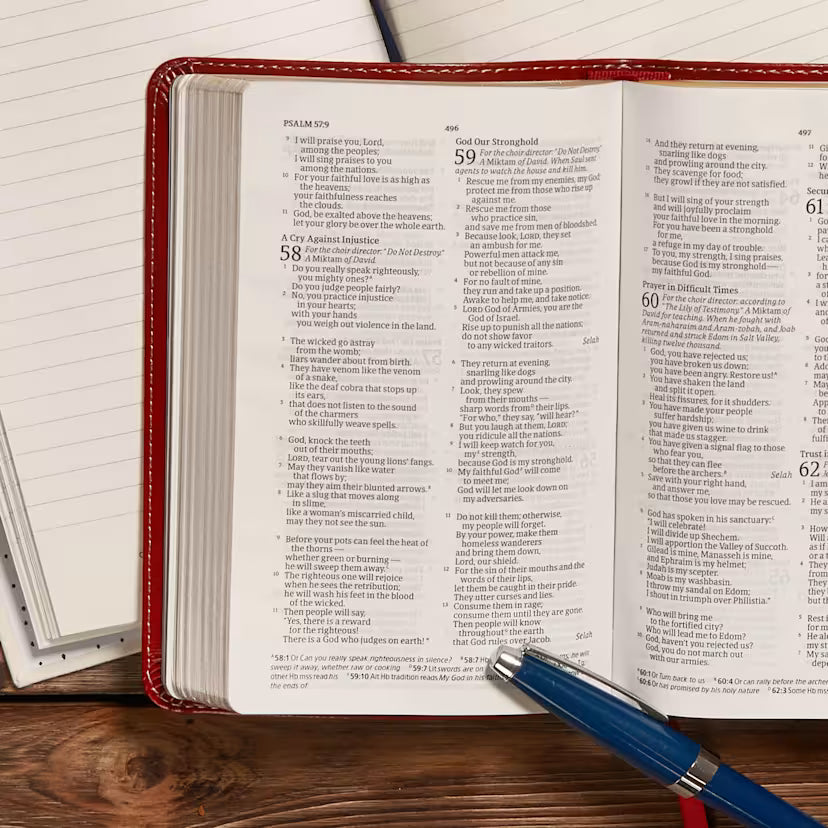 PSALM 57:9
496
9 I will praise you, Lord,
among the peoples;
I will sing praises to you
among the nations.
10 For your faithful love is as high as
the heavens;
your faithfulness reaches
the clouds.
11 God, be exalted above the heavens;
let your glory be over the whole earth.
A Cry Against Injustice
58 For the choir director: "Do Not Destroy."
A Miktam of David.
1 Do you really speak righteously,
you mighty ones?A
Do you judge people fairly?
2 No, you practice injustice
in your hearts;
with your hands
you weigh out violence in the land.
3 The wicked go astray
from the womb;
liars wander about from birth.
4 They have venom like the venom
of a snake,
like the deaf cobra that stops up
its ears,
5 that does not listen to the sound
of the charmers
who skillfully weave spells.
6 God, knock the teeth
out of their mouths;
LORD, tear out the young lions' fangs.
7 May they vanish like water
that flows by;
may they aim their blunted arrows.B
8 Like a slug that moves along
in slime,
like a woman's miscarried child,
may they not see the sun.
9 Before your pots can feel the heat of
the thorns —
whether green or burning —
he will sweep them away.C
10 The righteous one will rejoice
when he sees the retribution;
he will wash his feet in the blood
of the wicked.
11 Then people will say,
"Yes, there is a reward
for the righteous!
There is a God who judges on earth!"
God Our Stronghold
59 For the choir director: "Do Not Destroy."
A Miktam of David. When Saul sent
agents to watch the house and kill him.
1 Rescue me from my enemies, my God;
protect me from those who rise up
against me.
2 Rescue me from those
who practice sin,
and save me from men of bloodshed.
3 Because look, LORD, they set
an ambush for me.
Powerful men attack me,
but not because of any sin
or rebellion of mine.
4 For no fault of mine,
they run and take up a position.
Awake to help me, and take notice.
5 LORD God of Armies, you are the
God of Israel.
Rise up to punish all the nations;
do not show favor
to any wicked traitors. Selah
6 They return at evening,
snarling like dogs
and prowling around the city.
7 Look, they spew
from their mouths —
sharp words from their lips.
"For who," they say, "will hear?"
8 But you laugh at them, LORD;
you ridicule all the nations.
9 I will keep watch for you,
my strength,
because God is my stronghold.
10 My faithful God will come
to meet me;
God will let me look down on
my adversaries.
11 Do not kill them; otherwise,
my people will forget.
By your power, make them
homeless wanderers
and bring them down,
Lord, our shield.
12 For the sin of their mouths and the
words of their lips,
let them be caught in their pride.
They utter curses and lies.
13 Consume them in rage;
consume them until they are gone.
Then people will know
throughout the earth
that God rules over Jacob. Selah
A 58:1 Or Can you really speak righteousness in silence? B 58:7
sweep it away, whether raw or cooking D 59:7 Lit swords are on
other Hb mss read his 59:10 Alt Hb tradition reads My God in his
the ends of
497
14 And they return at evening,
snarling like dogs
and prowling around the city.
15 They scavenge for food;
they growl if they are not satisfied.
16 But I will sing of your strength
and will joyfully proclaim
your faithful love in the morning.
For you have been a stronghold
for me,
a refuge in my day of trouble.
17 To you, my strength, I sing praises,
because God is my stronghold —
my faithful God.
Prayer in Difficult Times
60 For the choir director: according to
"The Lily of Testimony." A Miktam of
David for teaching. When he fought with
Aram-naharaim and Aram-zobah, and Joab
returned and struck Edom in Salt Valley,
killing twelve thousand.
1 God, you have rejected us;
you have broken us down;
you have been angry. Restore us!A
2 You have shaken the land
and split it open.
Heal its fissures, for it shudders.
3 You have made your people
suffer hardship;
you have given us wine to drink
that made us stagger.
4 You have given a signal flag to those
who fear you,
so that they can flee
before the archers.B Selah
5 Save with your right hand,
and answer me,
so that those you love may be rescued.
6 God has spoken in his sanctuary:C
"I will celebrate!
I will divide up Shechem.
I will apportion the Valley of Succoth.
7 Gilead is mine, Manasseh is mine,
and Ephraim is my helmet;
Judah is my scepter.
8 Moab is my washbasin.
I throw my sandal on Edom;
I shout in triumph over Philistia."
9 Who will bring me
to the fortified city?
Who will lead me to Edom?
10 God, haven't you rejected us?
God, you do not march out
with our armies.
A 60:1 Or Turn back to us B 60:4 Or can rally before the archer
C 60:6 Or has promised by his holy nature D 62:3 Some Hb ms
61
62